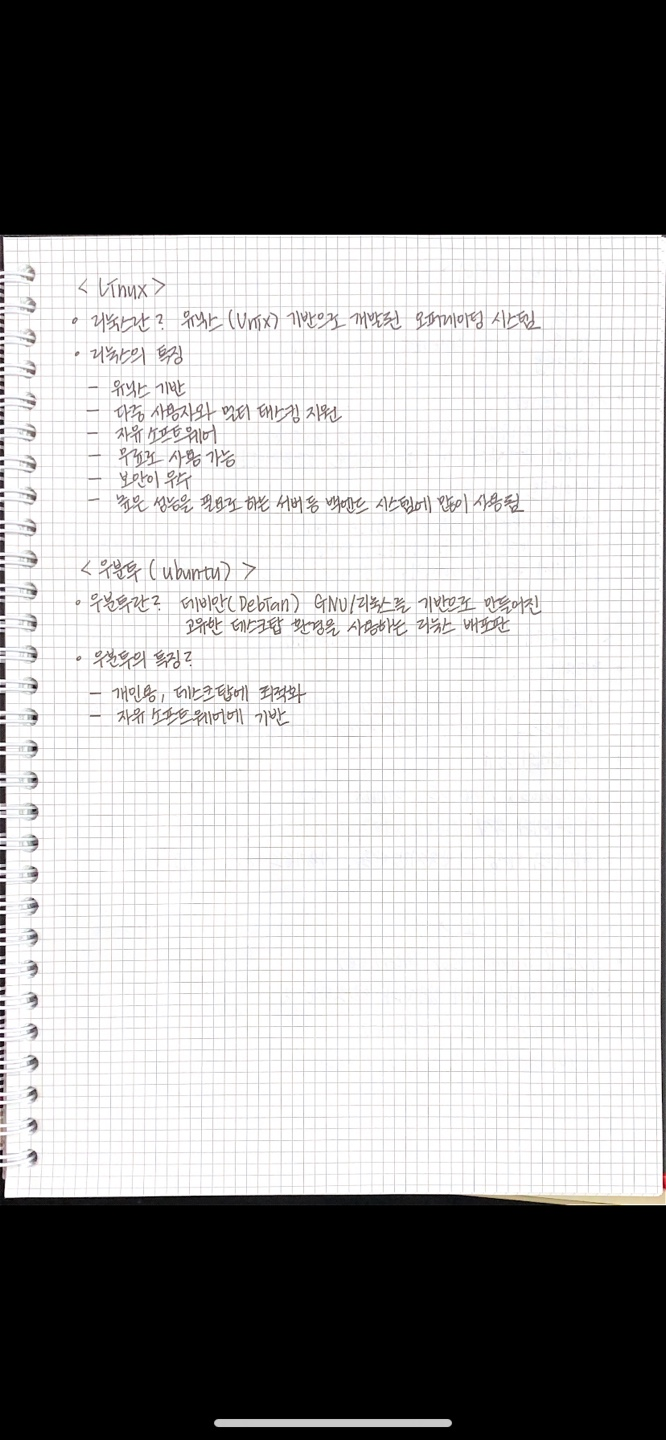 < Linux >
• 리눅스란? 유닉스(Unix) 기반으로 개발된 오퍼레이팅 시스템
• 리눅스의 특징
- 유닉스 기반
- 다중 사용자와 멀티 태스킹 지원
- 자유 소프트웨어
- 무료로 사용 가능
- 보안이 우수
- 높은 성능을 필요로 하는 서버 등 백엔드 시스템에 많이 사용됨
< 우분투 (ubuntu) >
• 우분투란? 데비안(Debian) GNU/리눅스를 기반으로 만들어진
고유한 데스크탑 환경을 사용하는 리눅스 배포판
• 우분투의 특징?
- 개인용, 데스크탑에 최적화
- 자유 소프트웨어에 기반